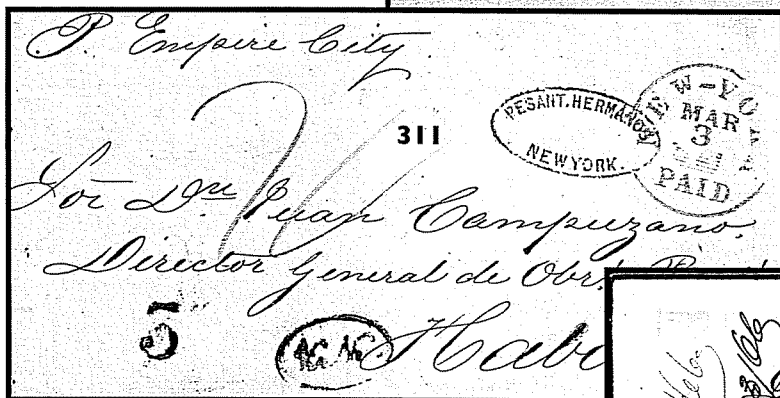 P. Empire City.
311
PESANT.HERMANOS
NEW YORK.
NEW-YORK
MAR
3
PAID
Sor Dn Juan Campuzano.
Director General de Obr.s
5
Haba